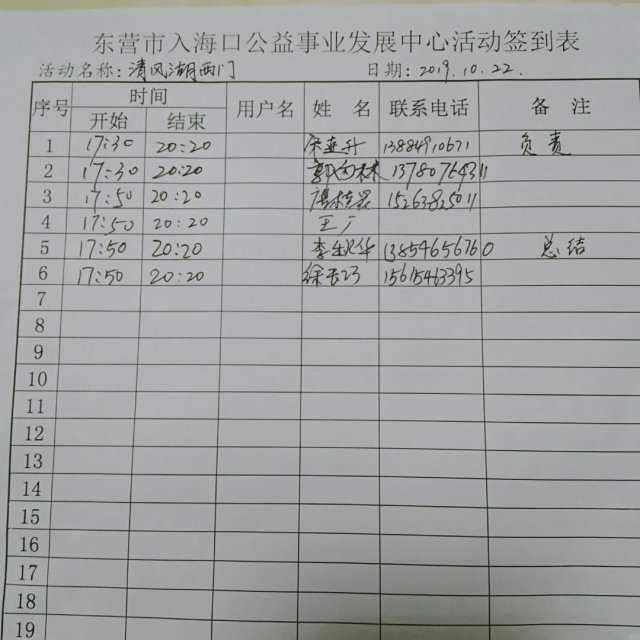 东营市入海口公益事业发展中心活动签到表
活动名称：清风湖西门 日期：2019.10.22.
序号 时间 用户名 姓 名 联系电话 备 注
开始 结束
1 17:30 20:20 13884910671 负责
2 17:30 20:20 13780764311
3 17:50 20:20 15263825011
4 17:50 20:20 王广
5 17:50 20:20 13854656760 总结
6 17:50 20:20 15615463395
7
8
9
10
11
12
13
14
15
16
17
18
19